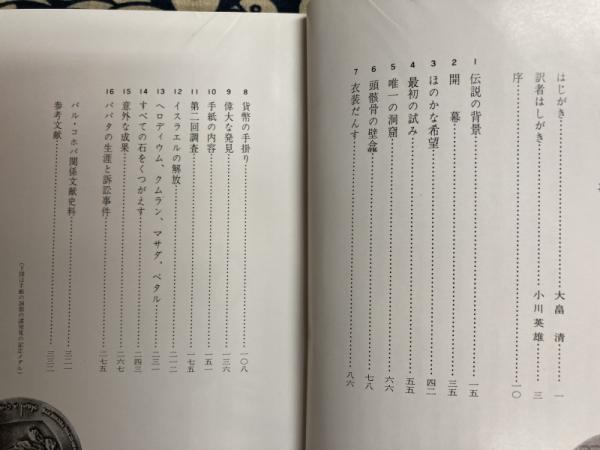 はじがき 大畠 清 一
訳者はしがき 小川英雄 三
序 一〇
1 伝説の背景 一五
2 開幕 三五
3 ほのかな希望 四二
4 最初の試み 五五
5 唯一の洞窟 六六
6 頭骸骨の壁龕 七八
7 衣装だんす 八六
8 貨幣の手掛り 一〇八
9 偉大な発見 一三六
10 手紙の内容 一五一
11 第二回調査 一七五
12 イスラエルの解放 二一二
13 ヘロディウム、クムラン、マサダ、ベタル 二三一
14 すべての石をくつがえす 二四三
15 意外な成果 二六七
16 ババタの生涯と訴訟事件 二七五
バル・コホバ関係文献史料 三二一
参考文献 三三二